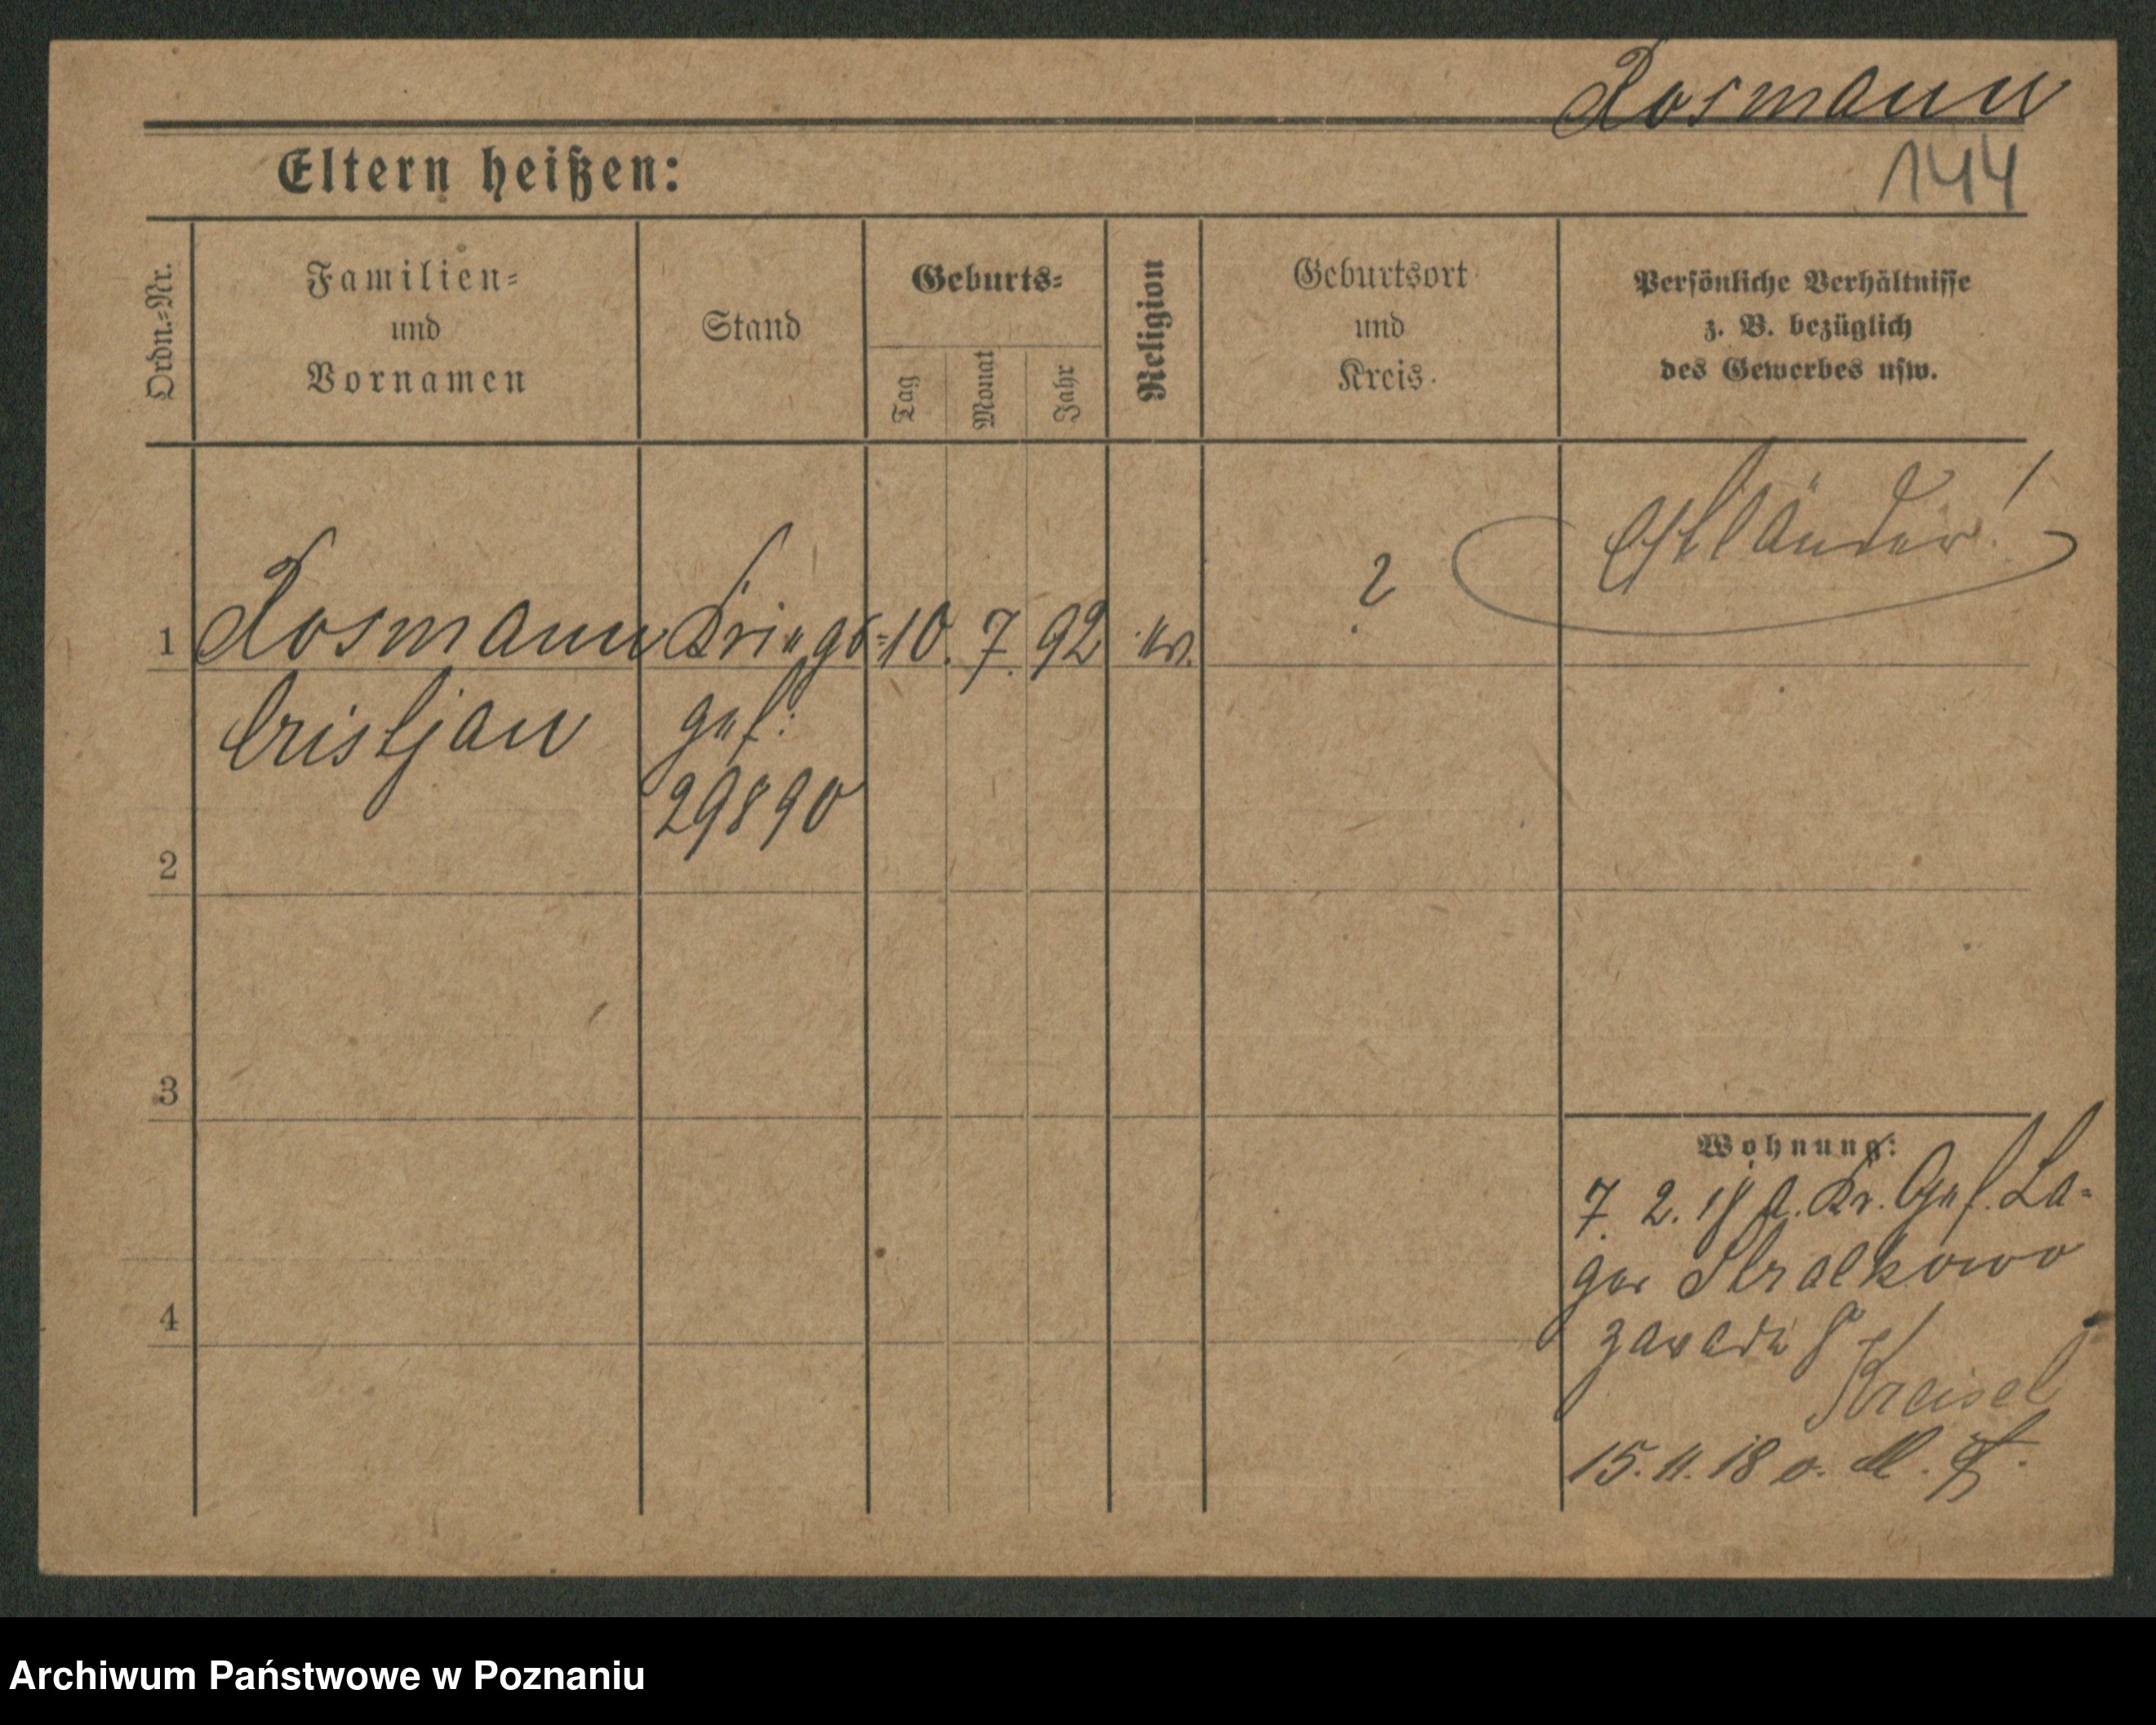 Rosmann
144
Eltern heißen:
Ordn.=Nr.
Familien=
und
Vornamen
Stand
Geburts=
Tag
Monat
Jahr
Religion
Geburtsort
und
Kreis.
Persönliche Verhältnisse
z. B. bezüglich
des Gewerbes usw.
Estländer!
1 Rosmann Kriegs= 10. 7. 92 ev. ?
Cristjan gef.
29890
2
3
4
Wohnung:
7. 2. 18 a. Kr. Gef. La-
ger Stralkowo
15. 11. 18 o.
Archiwum Państwowe w Poznaniu